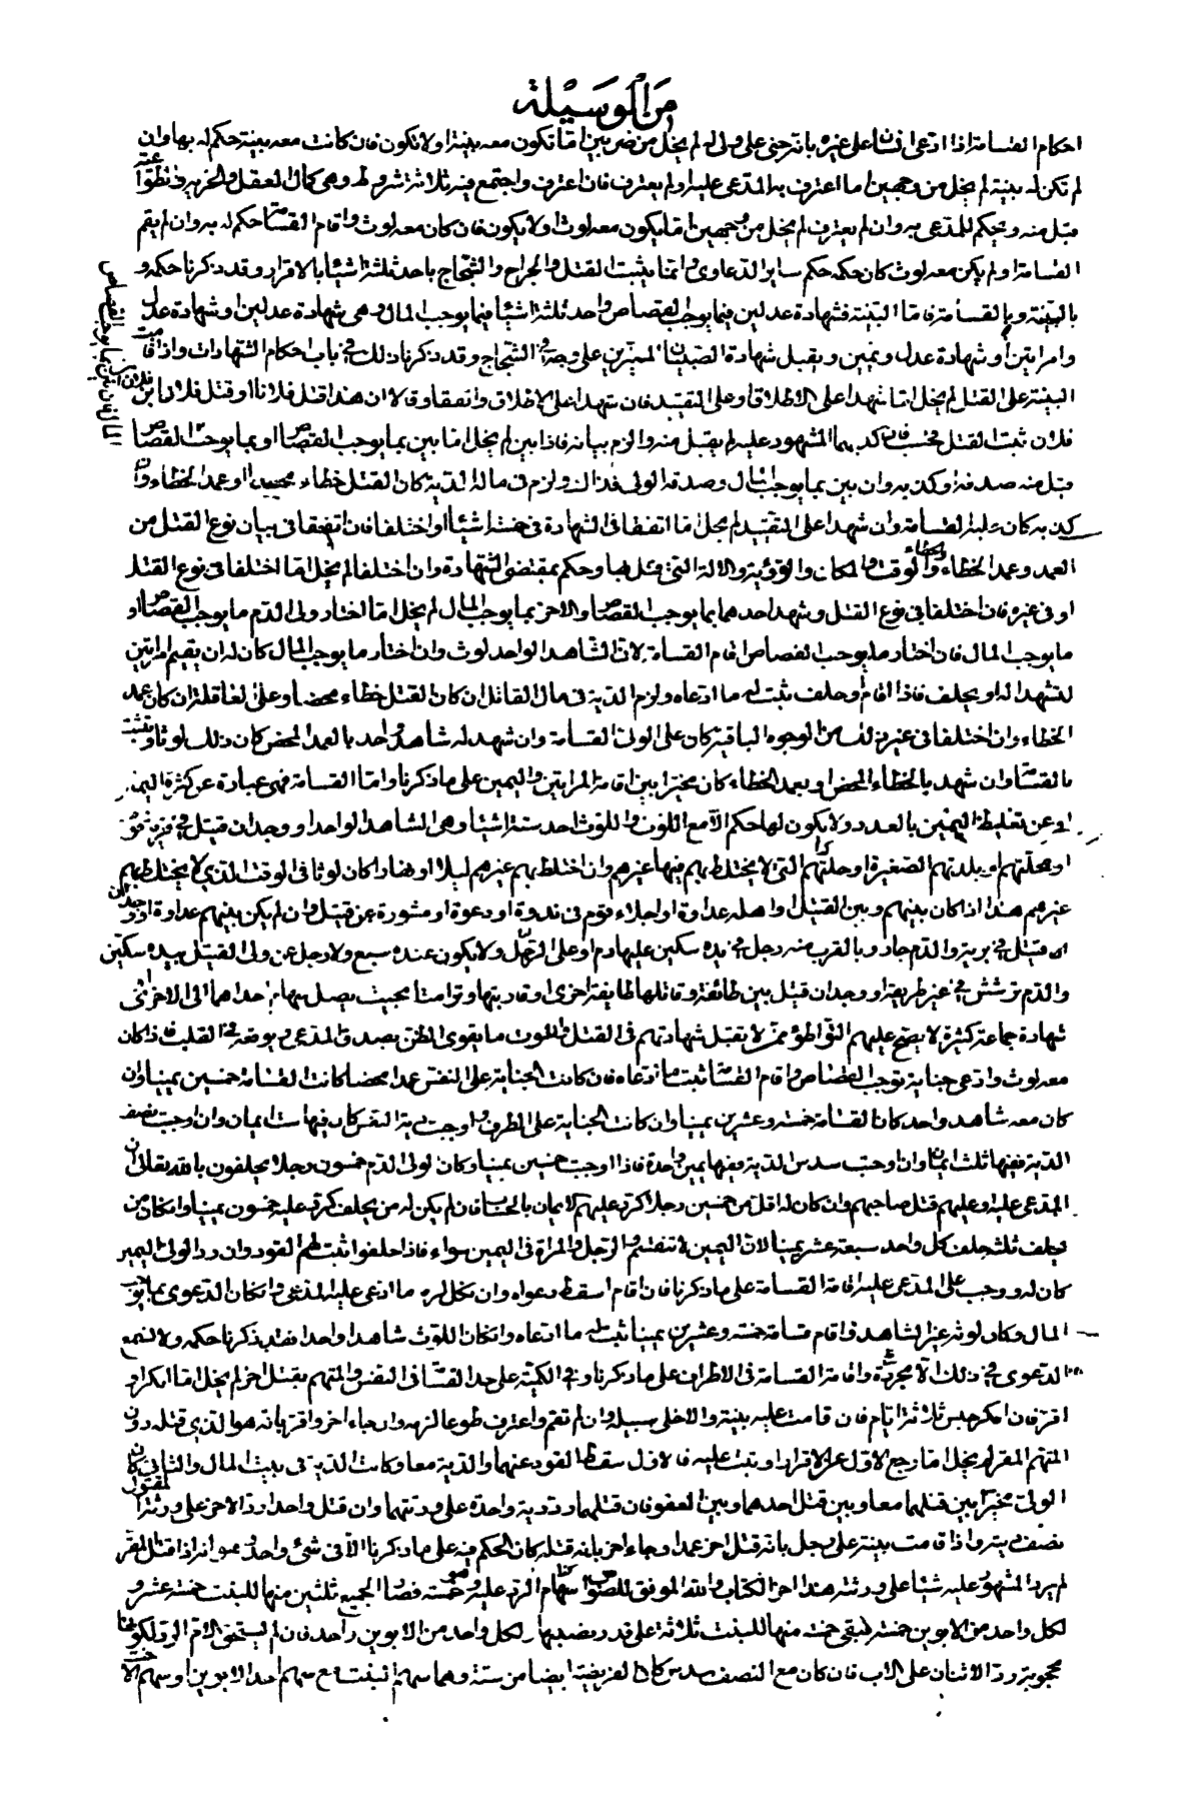 من الوسيلة
احكام القسامة اذا ادعى انسان على غيره بانه جنى على وليه لم يخل من ضربين اما تكون معه بينة او لا تكون فان كانت معه بينة حكم له بها وان
لم تكن له بينة لم يخل من وجهين اما اعترف به المدعى عليه او لم يعترف فان اعترف واجتمع فيه ثلاثة شروط وهى كمال العقل والحرية
قبل منه ويحكم للمدعى به وان لم يعترف لم يخل من وجهين اما يكون معه لوث او لا يكون فان كان معه لوث واقام القسامة حكم له به وان لم يقم
القسامة او لم يكن معه لوث كان حكمه حكم ساير الدعاوى وانما يثبت القتل والجراح والشجاج باحد ثلثة اشياء بالاقرار وقد ذكرنا حكمه و
بالبينة وبالقسامة فاما البينة فشهادة عدلين فيما يوجب القصاص واحد ثلثة اشياء فيما يوجب المال وهى شهادة عدلين او شهادة عدل
وامراتين او شهادة عدل ويمين ويقبل شهادة الصبيان المميزين على وجه فى الشجاج وقد ذكرنا ذلك فى باب احكام الشهادات واذا قامت
البينة على القتل لم يخل اما شهدا على الاطلاق او على التقييد فان شهدا على الاطلاق واتفقا وقالا ان هذا قتل فلانا او قتل فلان بن
فلان ثبت القتل فحسب فان كذبهما المشهود عليه لم يقبل منه والزم بيانه فاذا بين لم يخل اما بين بما يوجب القصاص او بما يوجب القصاص
قبل منه صدقه او كذبه وان بين بما يوجب المال وصدقه الولى فذاك ولزم فى ماله الدية كان القتل خطاء محضا او عمد الخطاء وان
كذبه كان عليه القسامة وان شهدا على التقييد لم يخل اما اتفقا فى الشهادة فى خمسة اشياء او اختلفا فان اتفقا فى بيان نوع القتل من
العمد وعمد الخطاء والخطاء والوقت والمكان والرؤية والالة التى قتل بها وحكم بمقتضى الشهادة وان اختلفا لم يخل اما اختلفا فى نوع القتل
او فى غيره فان اختلفا فى نوع القتل وشهد احدهما بما يوجب القصاص والاخر بما يوجب المال لم يخل اما اختار ولى الدم ما يوجب القصاص او
ما يوجب المال فان اختار ما يوجب القصاص اقام القسامة لان الشاهد الواحد لوث وان اختار ما يوجب المال كان له ان يقيم امراتين
لتشهدا له او يحلف فاذا اقام او حلف ثبت له ما ادعاه ولزم الدية فى مال القاتل ان كان القتل خطاء محضا وعلى العاقلة ان كان عمد
الخطاء وان اختلفا فى غير ذلك من الوجوه الباقية كان على الولى القسامة وان شهد له شاهد واحد بالعمد المحض كان ذلك لوثا وتثبت
بالقسامة وان شهد بالخطاء المحض او بعمد الخطاء كان مخيرا بين اقامة المراتين واليمين على ما ذكرنا واما القسامة فهى عبارة عن كثرة اليمين
او عن تغليظ اليمين بالعدد ولا يكون لها حكم الا مع اللوث واللوث احد ستة اشياء وهى الشاهد الواحد او وجدان قتيل فى قرية قوم
او محلتهم او بلدتهم الصغيرة او حلتهم التى لا يختلط بهم فيها غيرهم وان اختلط بهم غيرهم ليلا او نهارا كان لوثا فى الوقت الذى لا يختلط بهم
غيرهم هذا اذا كان بينهم وبين القتيل او اهله عداوة او اجلاء قوم فى ندوة او دعوة او مشورة عن قتيل وان لم يكن بينهم عداوة او وجدان
قتيل فى برية والدم جار وبالقرب منه رجل فى يده سكين عليها دم او على الرجل ولا يكون عنده سبع ولا رجل عن ولى القتيل بيده سكين
والدم ترشش فى غير طريقه او وجدان قتيل بين طائفة وقاتلها طايفة اخرى او قاربتها وترامتا بحيث يصل سهام احداهما الى الاخرى او
شهادة جماعة كثيرة لا يصح عليهم التواطؤ ممن لا يقبل شهادتهم فى القتل واللوث ما يقوى الظن بصدق المدعى ويوقعه فى القلب فاذا كان
معه لوث وادعى جناية توجب القصاص واقام القسامة ثبت ما ادعاه فان كانت الجناية على النفس عمدا محضا كانت القسامة خمسين يمينا وان
كان معه شاهد واحد كان القسامة خمسة وعشرين يمينا وان كانت الجناية على الطرف واوجبت دية النفس كان فيها ست ايمان وان اوجبت نصف
الدية ففيها ثلث ايمان وان اوجبت سدس الدية ففيها يمين واحدة فاذا اوجبت خمسين يمينا وكان لولى الدم خمسون رجلا يحلفون بالله تعالى ان
المدعى عليه وعليهم قتل صاحبهم وان كان له اقل من خمسين رجلا كرر عليهم الايمان بالحساب فان لم يكن له من يحلف كرر عليه خمسون يمينا وان كان من
يحلف ثلثة حلف كل واحد سبعة عشر يمينا لان اليمين لا تنقسم والرجل والمراة فى اليمين سواء فاذا حلفوا ثبت لهم القود وان رد الولى اليمين
كان له ووجب على المدعى عليه اقامة القسامة على ما ذكرنا فان اقام اسقط دعواه وان نكل لزمه ما ادعى عليه المدعى وان كان الدعوى بما يوجب
المال وكان لوثه غير الشاهد فاقام قسامة خمسة وعشرين يمينا ثبت له ما ادعاه وان كان اللوث شاهدا واحدا فقد ذكرنا حكمه ولا تسمع
الدعوى فى ذلك الا محررة واقامة القسامة فى الاطراف على ما ذكرنا وفى الكمية على حد القسامة فى النفس والمتهم بقتل اخر لم يخل اما انكر او
اقر فان انكر حبس ثلاثة ايام فان قامت عليه بينة والا خلى سبيله وان لم تقم واعترف طوعا لزمه وان جاء اخر واقر بانه هو الذى قتله دون
المتهم المقر لم يخل اما رجع الاول عن الاقرار او ثبت عليه فالاول سقط القود عنهما والدية معا وكانت الدية فى بيت المال والثانى كان
الولى مخيرا بين قتلهما معا وبين قتل احدهما وبين العفو فان قتلهما رد دية واحدة على ورثتهما وان قتل واحدا رد الاخر على ورثة المقتول
نصف دية واذا قامت بينة على رجل بانه قتل اخر عمدا وجاء اخر بانه قتله كان الحكم فيه على ما ذكرنا الا فى شىء واحد وهو انه اذا قتل المقر
لم يرد المشهود عليه شيئا على ورثته هذا اخر الكتاب والله الموفق للصواب سهام الرد عليه وهو خمسة فصار الجميع ثلثين منها للبنت خمسة عشر و
لكل واحد من الابوين خمسة تبقى خمسة منها للبنت ثلاثة على قدر نصيبها ولكل واحد من الابوين واحد فان لم يستحق الام الرد لكونها
محجوبة رد الاثنان على الاب فان كان مع النصف سدس كان الفريضة ايضا من ستة وهما سهم البنت مع سهم احد الابوين او سهم